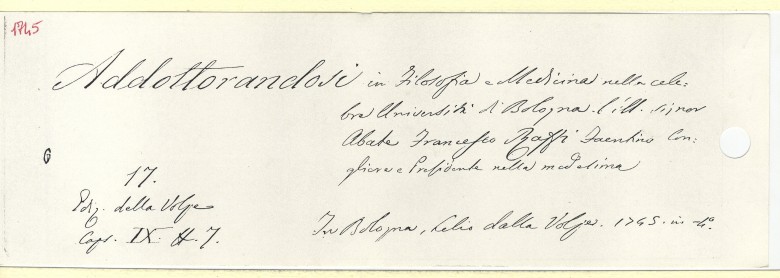 1745
Addottorandosi in Filosofia e Medicina nella cele:
bre Università di Bologna l'ill. signor
Abate Francesco Raffi Faentino Con:
gliere e Presidente nella medesima
6
17.
Ediz. della Volpe
Caps. IX. H. 7.
In Bologna, Lelio dalla Volpe. 1745. in-4°.